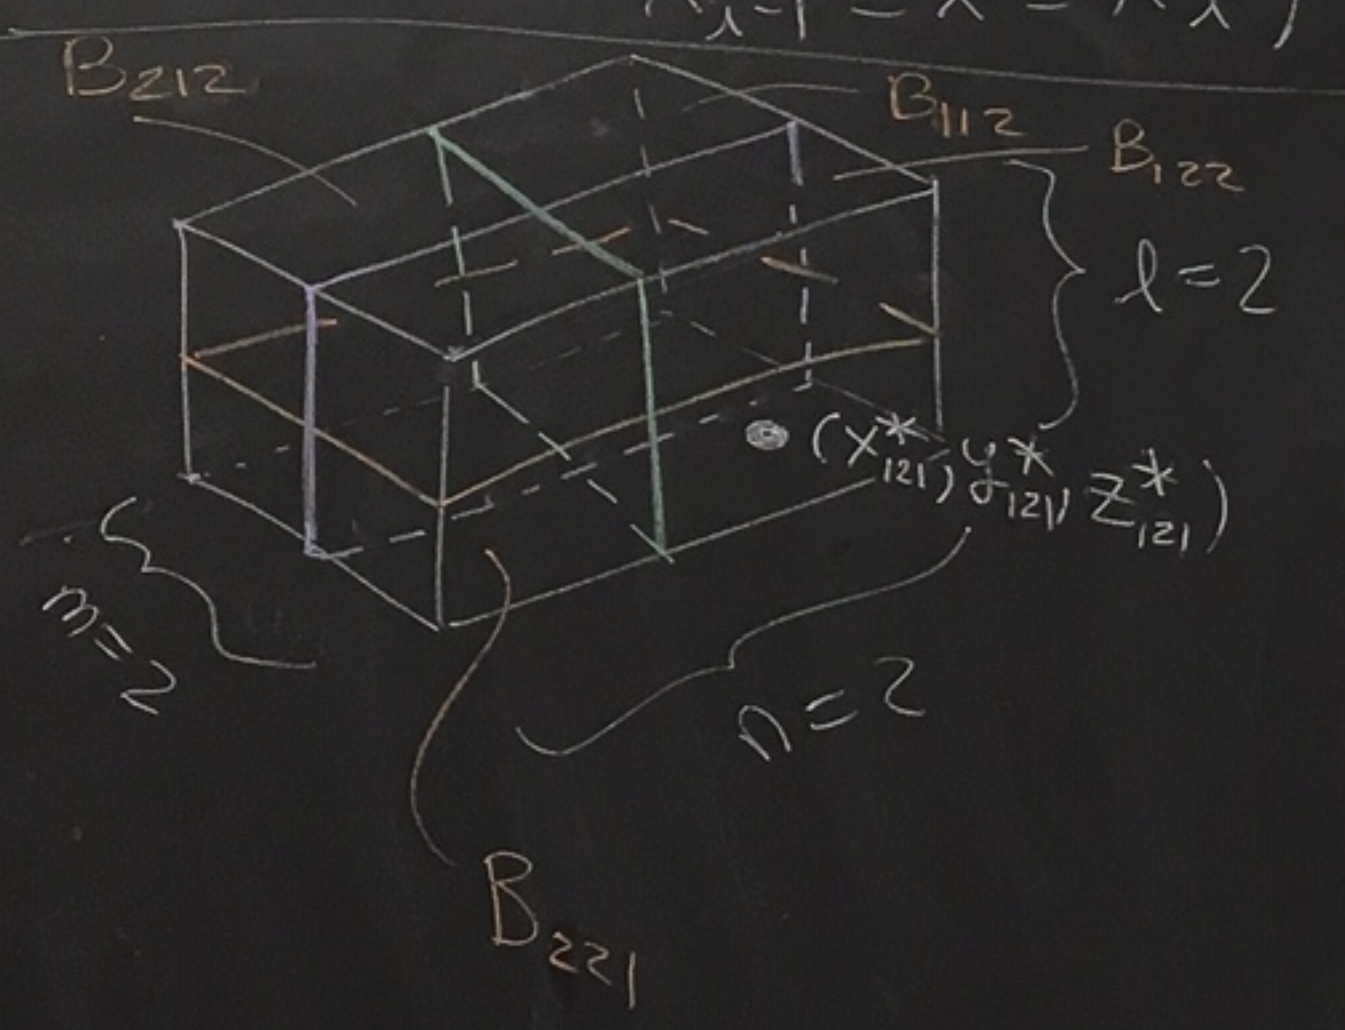 B₂₁₂
B₁₁₂
B₁₂₂
l = 2
(x*₁₂₁, y*₁₂₁, z*₁₂₁)
m = 2
n = 2
B₂₂₁